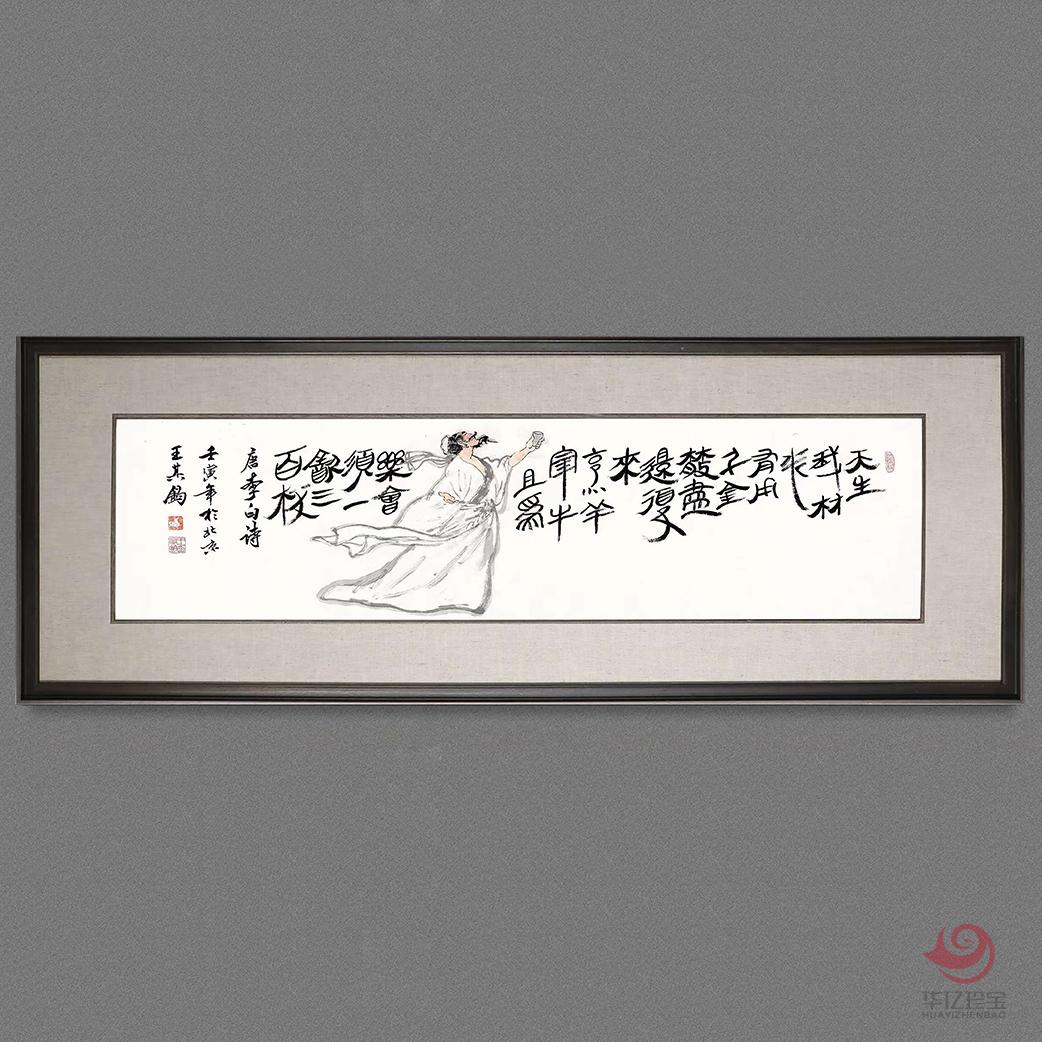 天生
我材
必
有用
千金
散盡
還復
來
烹羊
宰牛
且為
樂會
須一
飲三
百杯
唐李白诗
壬寅年於北京
王其鈞
华亿珍宝
HUAYIZHENBAO